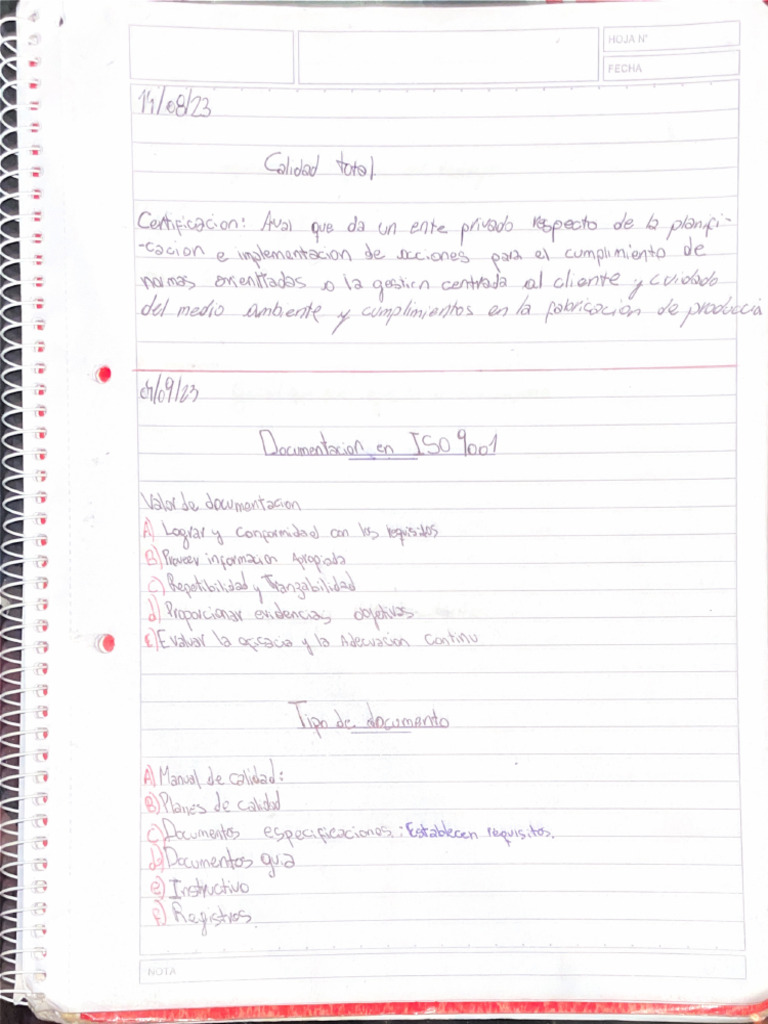 HOJA N°
FECHA
14/08/23
Calidad total.
Certificacion: Aval que da un ente privado respecto de la planifi-
-cacion e implementacion de acciones para el cumplimiento de
normas orientadas a la gestion centrada al cliente y cuidado
del medio ambiente y cumplimientos en la fabricacion de producció
/09/23
Documentacion en ISO 9001
Valor de documentacion
A) Lograr y conformidad con los requisitos
B) Proveer informacion Apropiada
C) Repetibilidad y Tranzabilidad
d) Proporcionar evidencias objetivas
E) Evaluar la eficacia y la Adecuacion Continu
Tipo de documento
A) Manual de calidad:
B) Planes de calidad
C) Documentos especificaciones: Establecen requisitos.
d) Documentos guia
e) Instructivo
f) Registros.
NOTA